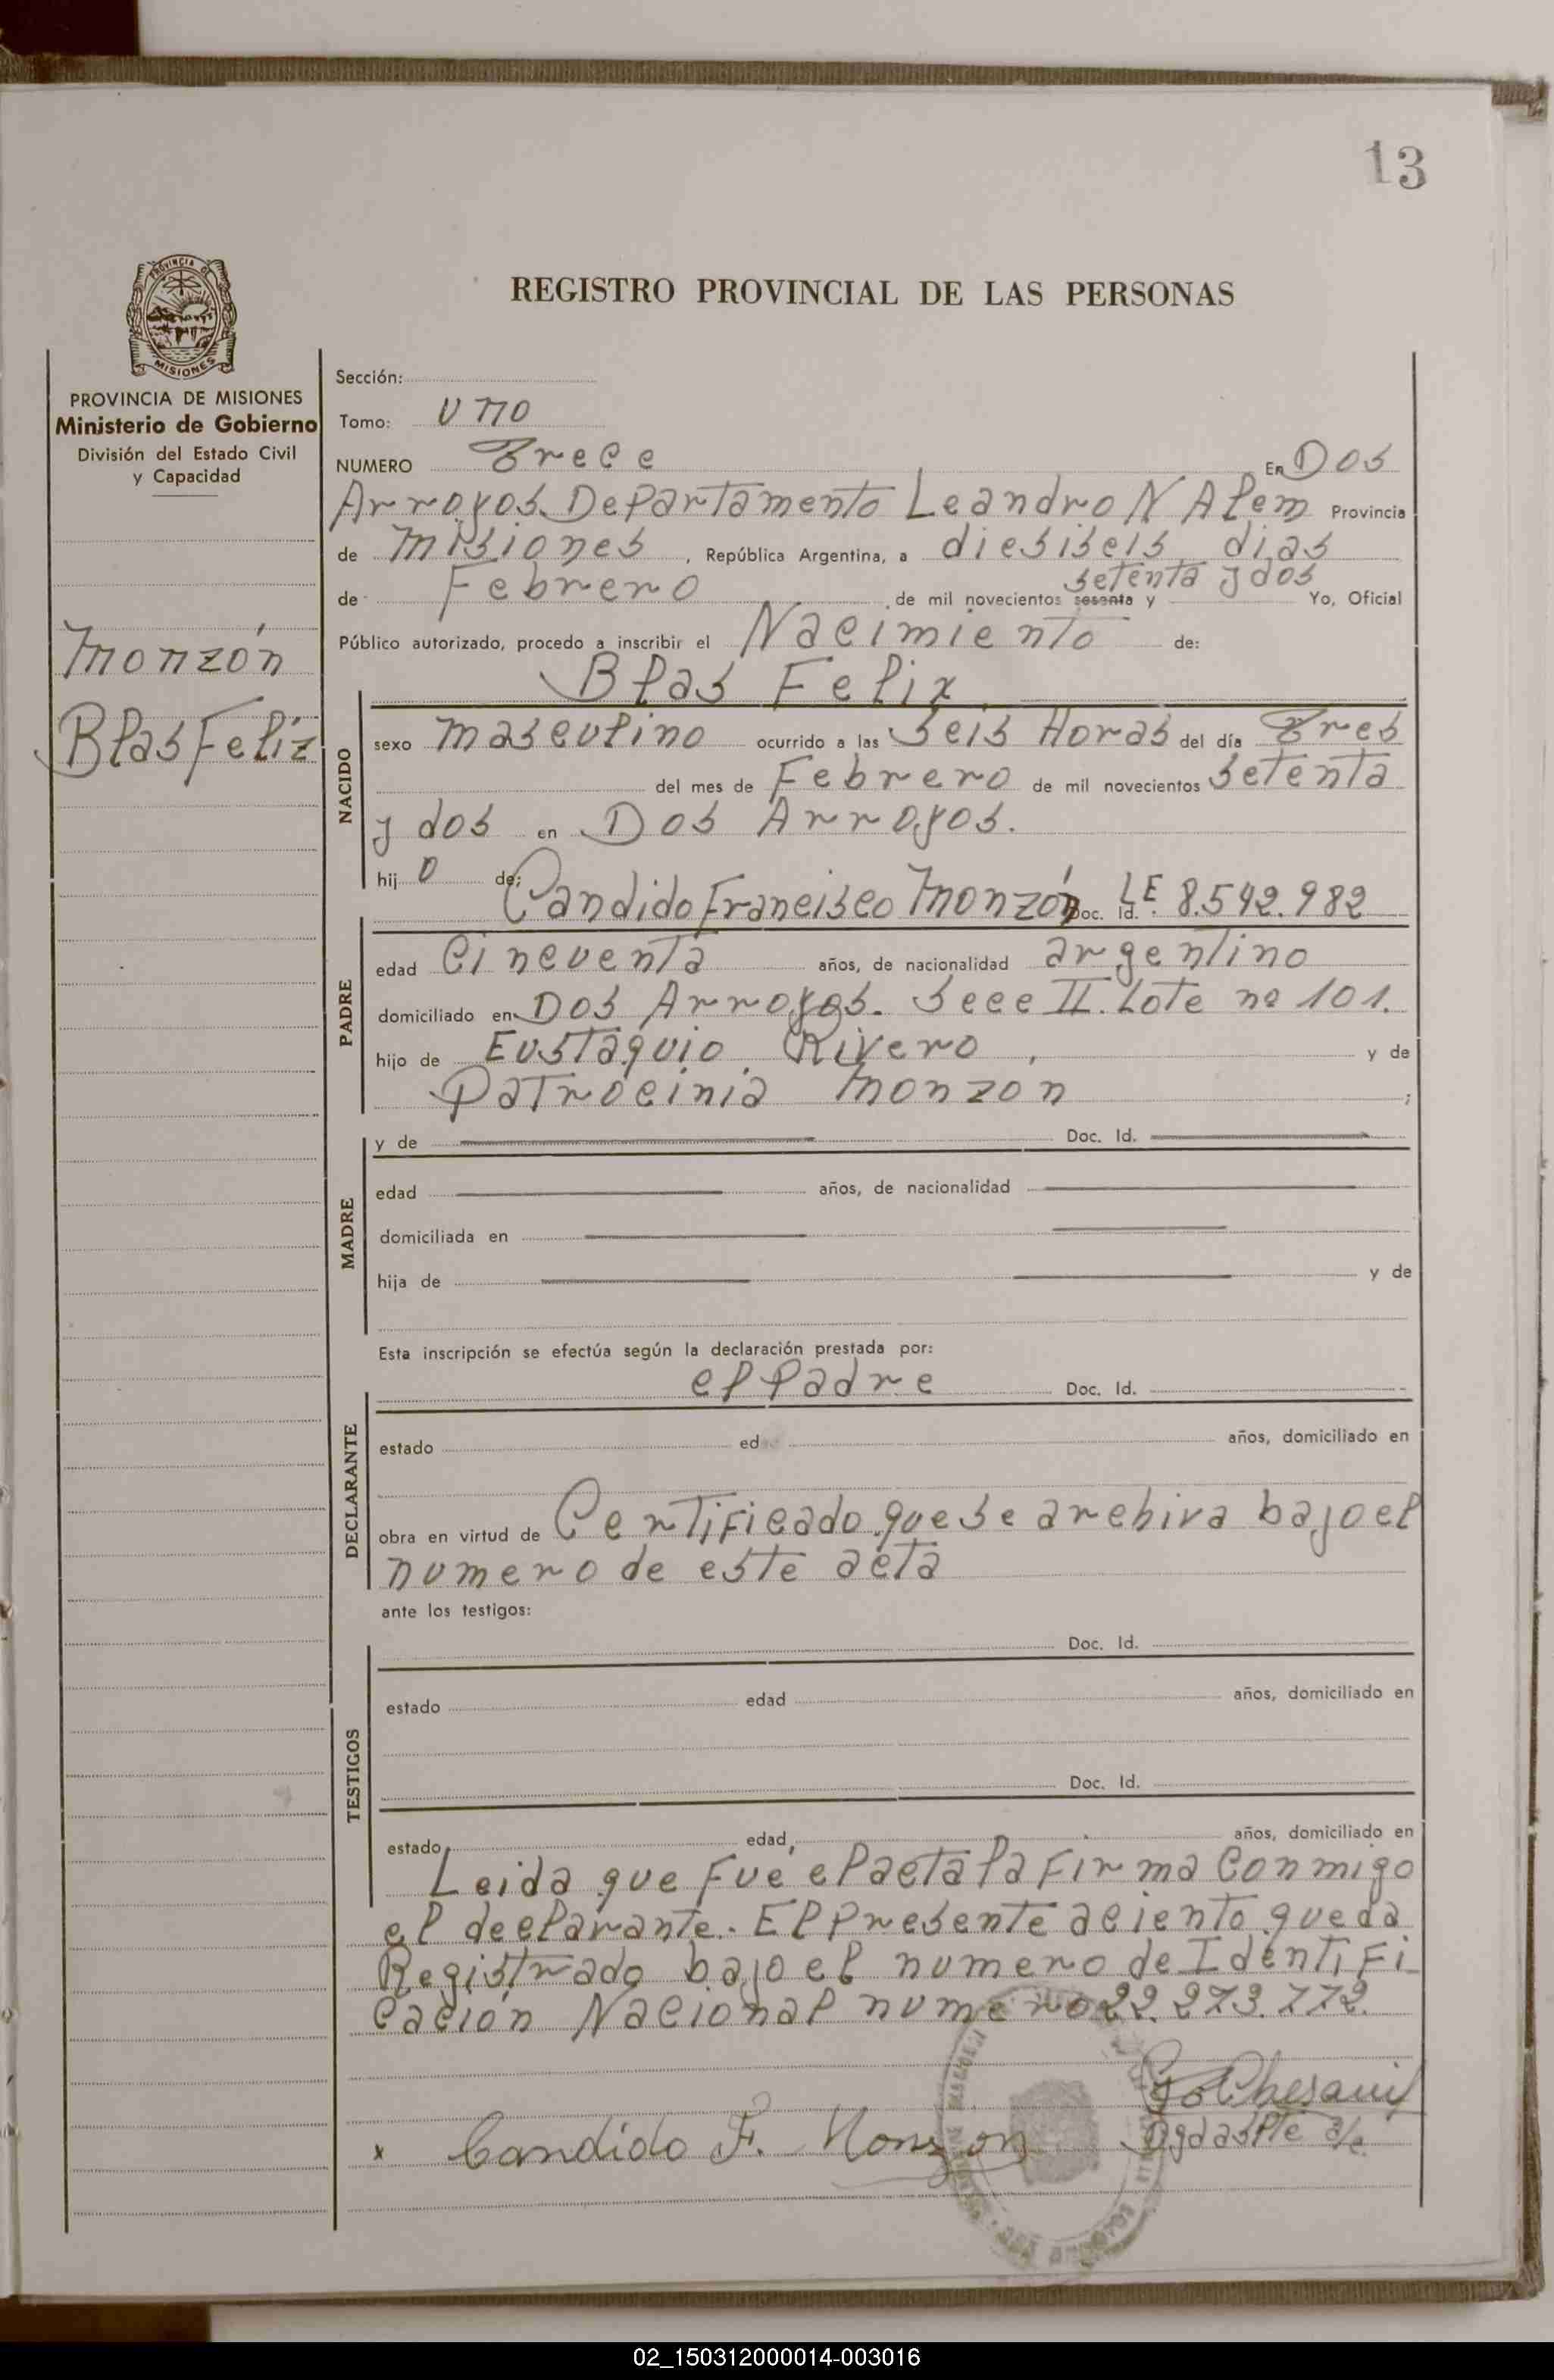 13
PROVINCIA DE
MISIONES
REGISTRO PROVINCIAL DE LAS PERSONAS
PROVINCIA DE MISIONES
Ministerio de Gobierno
División del Estado Civil
y Capacidad
Monzón
Blas Feliz
Sección:
Tomo: uno
NUMERO Trece En Dos
Arroyos. Departamento Leandro N Alem Provincia
de Misiones, República Argentina, a diesiseis dias
de Febrero de mil novecientos sesenta y setenta y dos Yo, Oficial
Público autorizado, procedo a inscribir el Nacimiento de:
Blas Felix
NACIDO
sexo masculino ocurrido a las Seis Horas del día Tres
del mes de Febrero de mil novecientos Setenta
y dos en Dos Arroyos.
hijo de: Candido Francisco Monzón Doc. Id. L.E. 8.542.982
PADRE
edad Cincuenta años, de nacionalidad argentino
domiciliado en Dos Arroyos. Secc II. Lote nº 101.
hijo de Eustaquio Rivero, y de
Patrocinia Monzón;
MADRE
y de Doc. Id.
edad años, de nacionalidad
domiciliada en
hija de y de
Esta inscripción se efectúa según la declaración prestada por:
el Padre Doc. Id.
DECLARANTE
estado ed años, domiciliado en
obra en virtud de Certificado que se archiva bajo el
numero de este acta
ante los testigos:
Doc. Id.
TESTIGOS
estado edad años, domiciliado en
Doc. Id.
estado edad años, domiciliado en
Leida que fué el acta la firma Conmigo
el declarante. El presente aciento queda
Registrado bajo el numero de Identifi
cación Nacional numero 22.273.772.
Candido F. Monzon
02_150312000014-003016